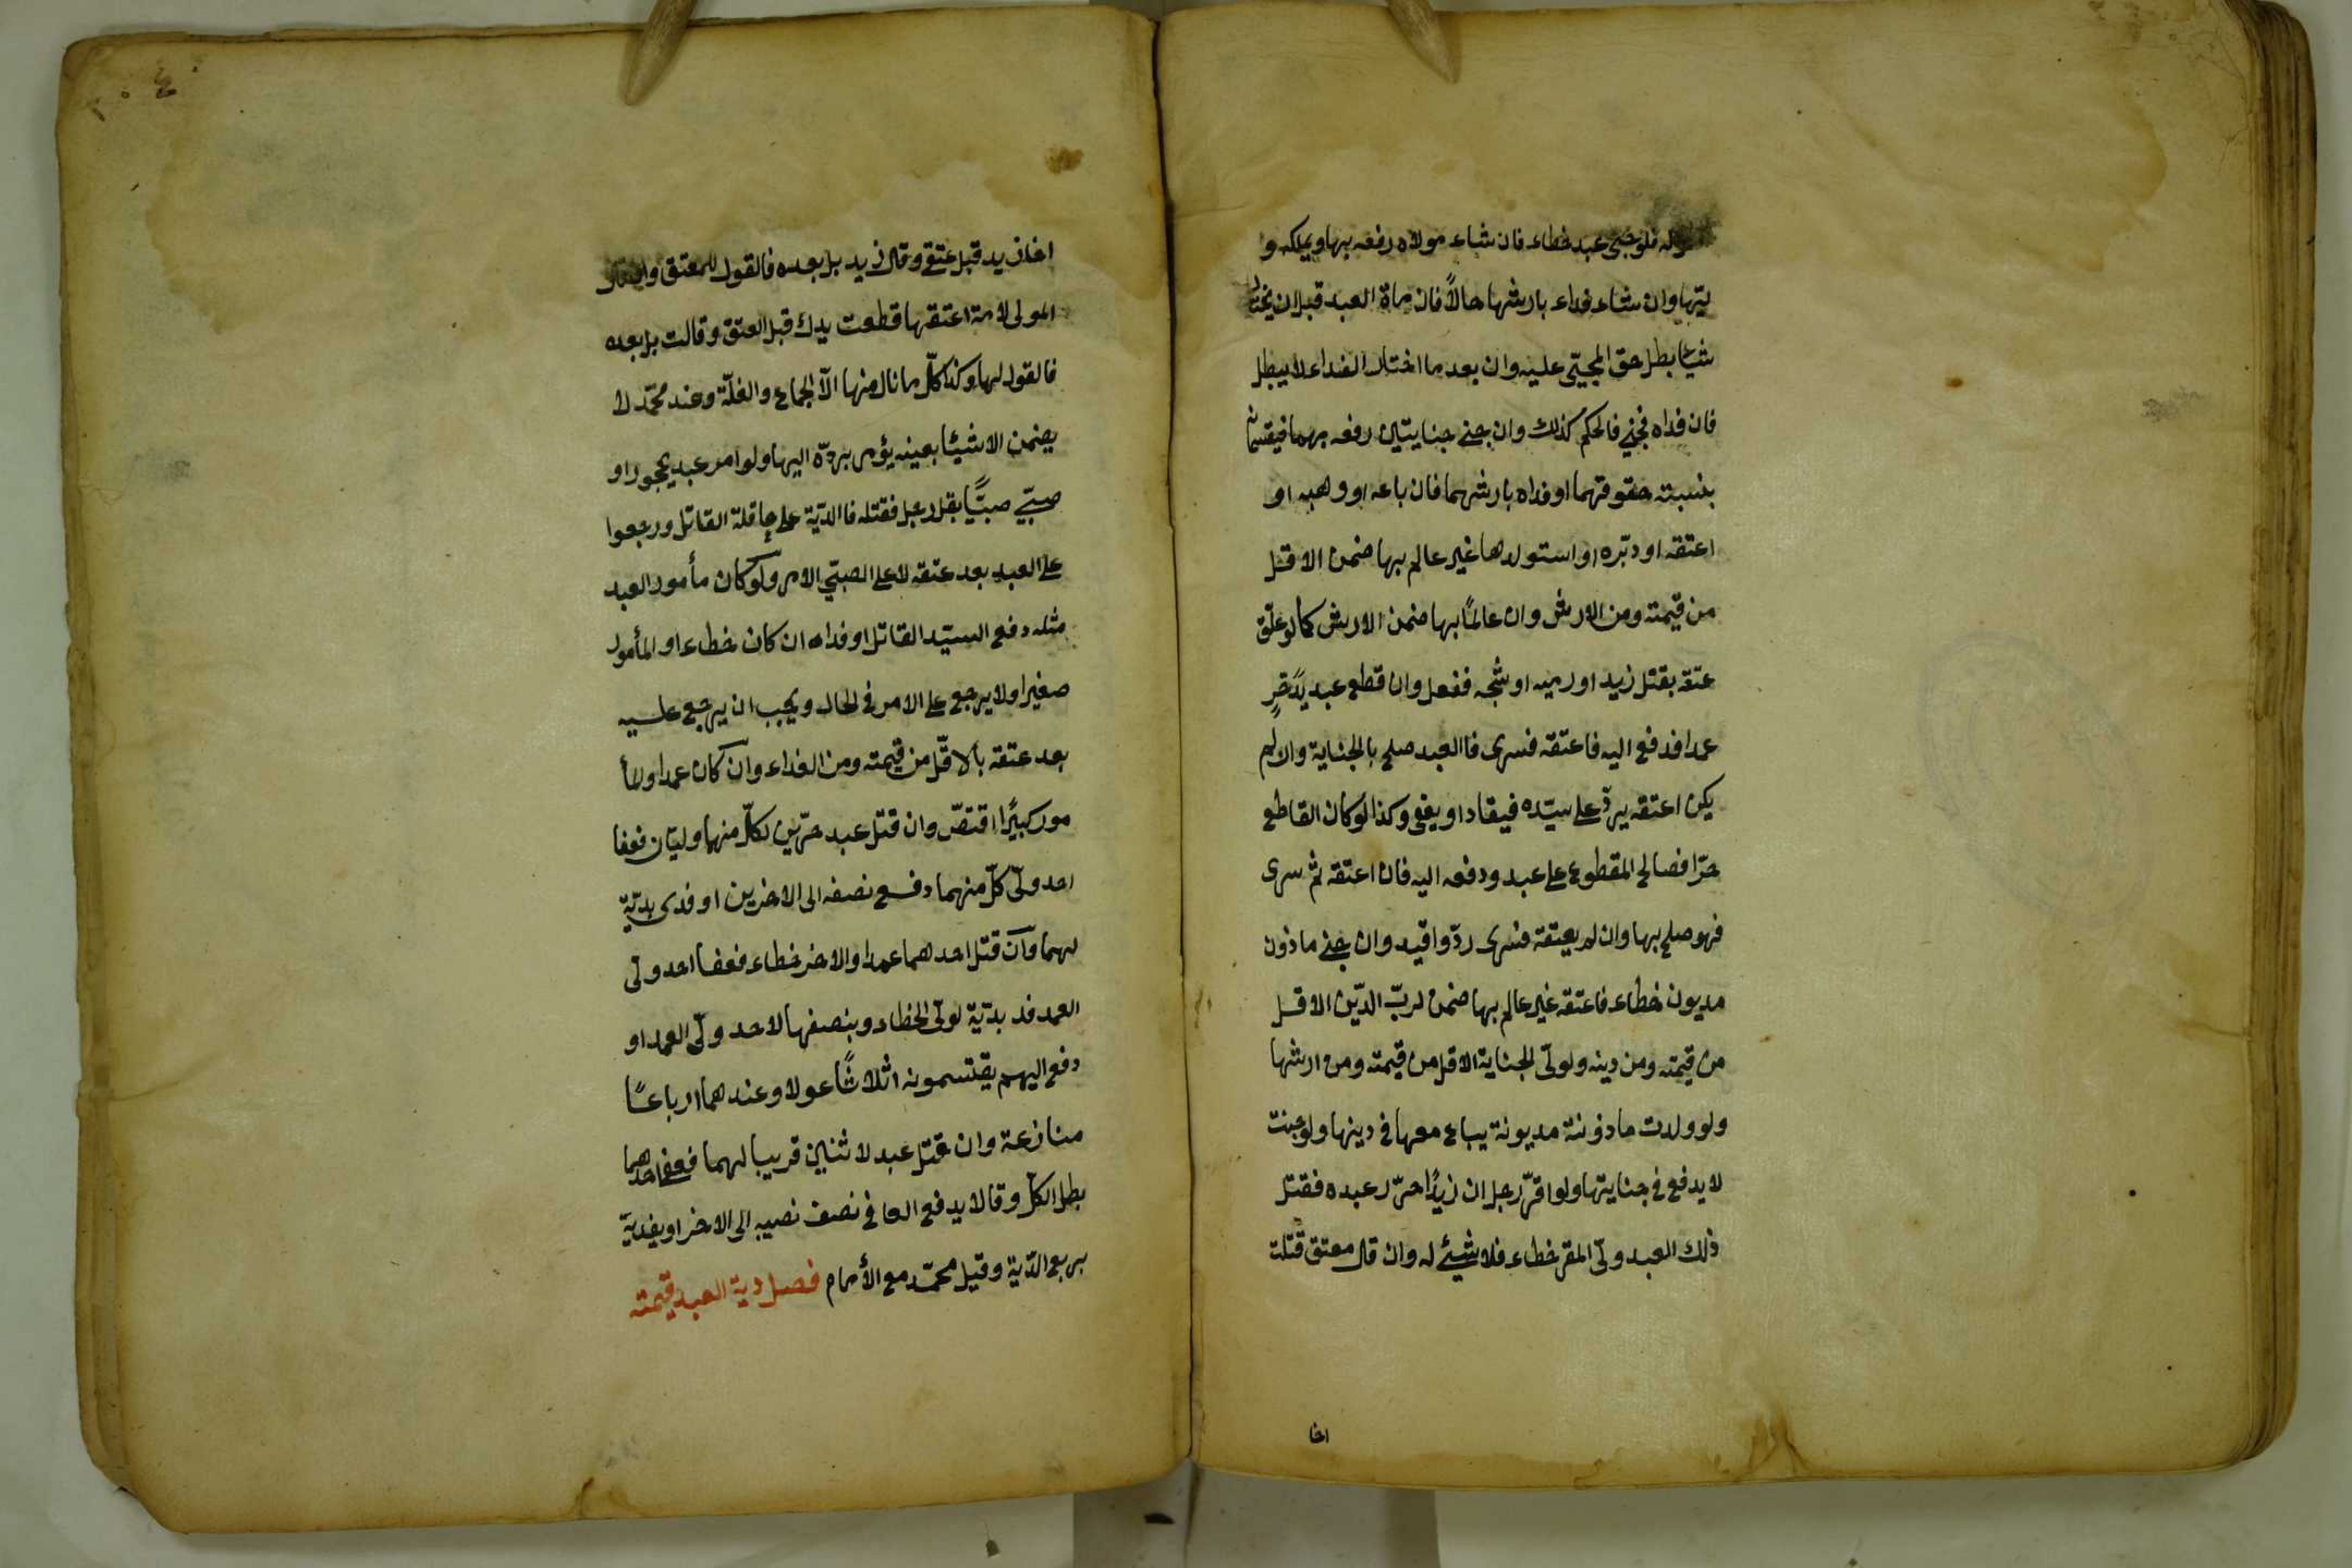 فلو جنى عبد خطاء فان شاء مولاه دفعه بها ويملكه و
ليّها وان شاء فداء بارشها حالاً فان ماة العبد قبل ان يختار
شيئا بطل حق المجنيّ عليه وان بعد ما اختار الفداء لا يبطل
فان فداه فجنى فالحكم كذلك وان جنى جنايتين دفعه بهما فيقتسمانه
بنسبته حقوقهما او فداه بارشهما فان باعه او وهبه او
اعتقه او دبّره او استولدها غير عالم بها ضمن الاقل
من قيمته ومن الارش وان عالمًا بها ضمن الارش كما لو علّق
عتقه بقتل زيد او رميه او شجّه ففعل وان قطع عبد يدَ حرٍ
عمدا فدفع اليه فاعتقه فسرى فاالعبد صلح بالجناية وان لم
يكن اعتقه يردّ على سيّده فيقاد او يعفى وكذا لو كان القاطع
حرّا فصالح المقطوع على عبد ودفعه اليه فان اعتقه ثم سرى
فهو صلح بها وان لم يعتقه فسرى ردّ واقيد وان جنى ماذون
مديون خطاء فاعتقه غير عالم بها ضمن لربّ الدّين الاقل
من قيمته ومن دينه ولوليّ الجناية الاقل من قيمته ومن ارشها
ولو ولدت ماذونة مديونة يباع معها في دينها ولو جنت
لا يدفع في جنايتها ولو اقرّ رجل ان زيدًا حرّر عبده فقتل
ذلك العبد وليّ المقر خطاء فلا شيئ له وان قال معتق قتلت
اخا
اخا زيد قبل عتقي وقال زيد بل بعده فالقول للمعتق وان قال
المولى لامة اعتقها قطعت يدك قبل العتق وقالت بل بعده
فالقول لها وكذا كلّ ما نال منها الّا الجماع والغلّة وعند محمّد لا
يضمن الا شيئا بعينه يؤمر بردّه اليها ولو امر عبد محجور او
صبيّ صبيًّا بقتل رجل فقتله فاالديّة على عاقلة القاتل ورجعوا
على العبد بعد عتقه لا على الصبيّ الامر ولو كان مأمور العبد
مثله دفع السيّد القاتل او فداه ان كان خطاء او المأمور
صغيرا ولا يرجع على الامر في الحال ويجب ان يرجع عليه
بعد عتقه بالاقلّ من قيمته ومن الفداء وان كان عمدا والمأ
مور كبيرًا اقتصّ وان قتل عبد حرّين لكلّ منهما وليّان فعفا
احد وليّ كلّ منهما دفع نصفه الى الاخرين او فدى بديّة
لهما وان قتل احدهما عمدا والاخر خطاء فعفا احد وليّ
العمد فد بديّة لوليّ الخطاء وبنصفها لاحد وليّ العمد او
دفع اليهم يقتسمونه اثلاثًا عولا وعندهما ارباعًا
منازعة وان قتل عبد لاثنين قريبا لهما فعفا احدهما
بطل الكلّ وقالا يدفع العافي نصف نصيبه الى الاخر او يفديّه
بربع الدّية وقيل محمّد مع الأمام فصل دية العبد قيمته